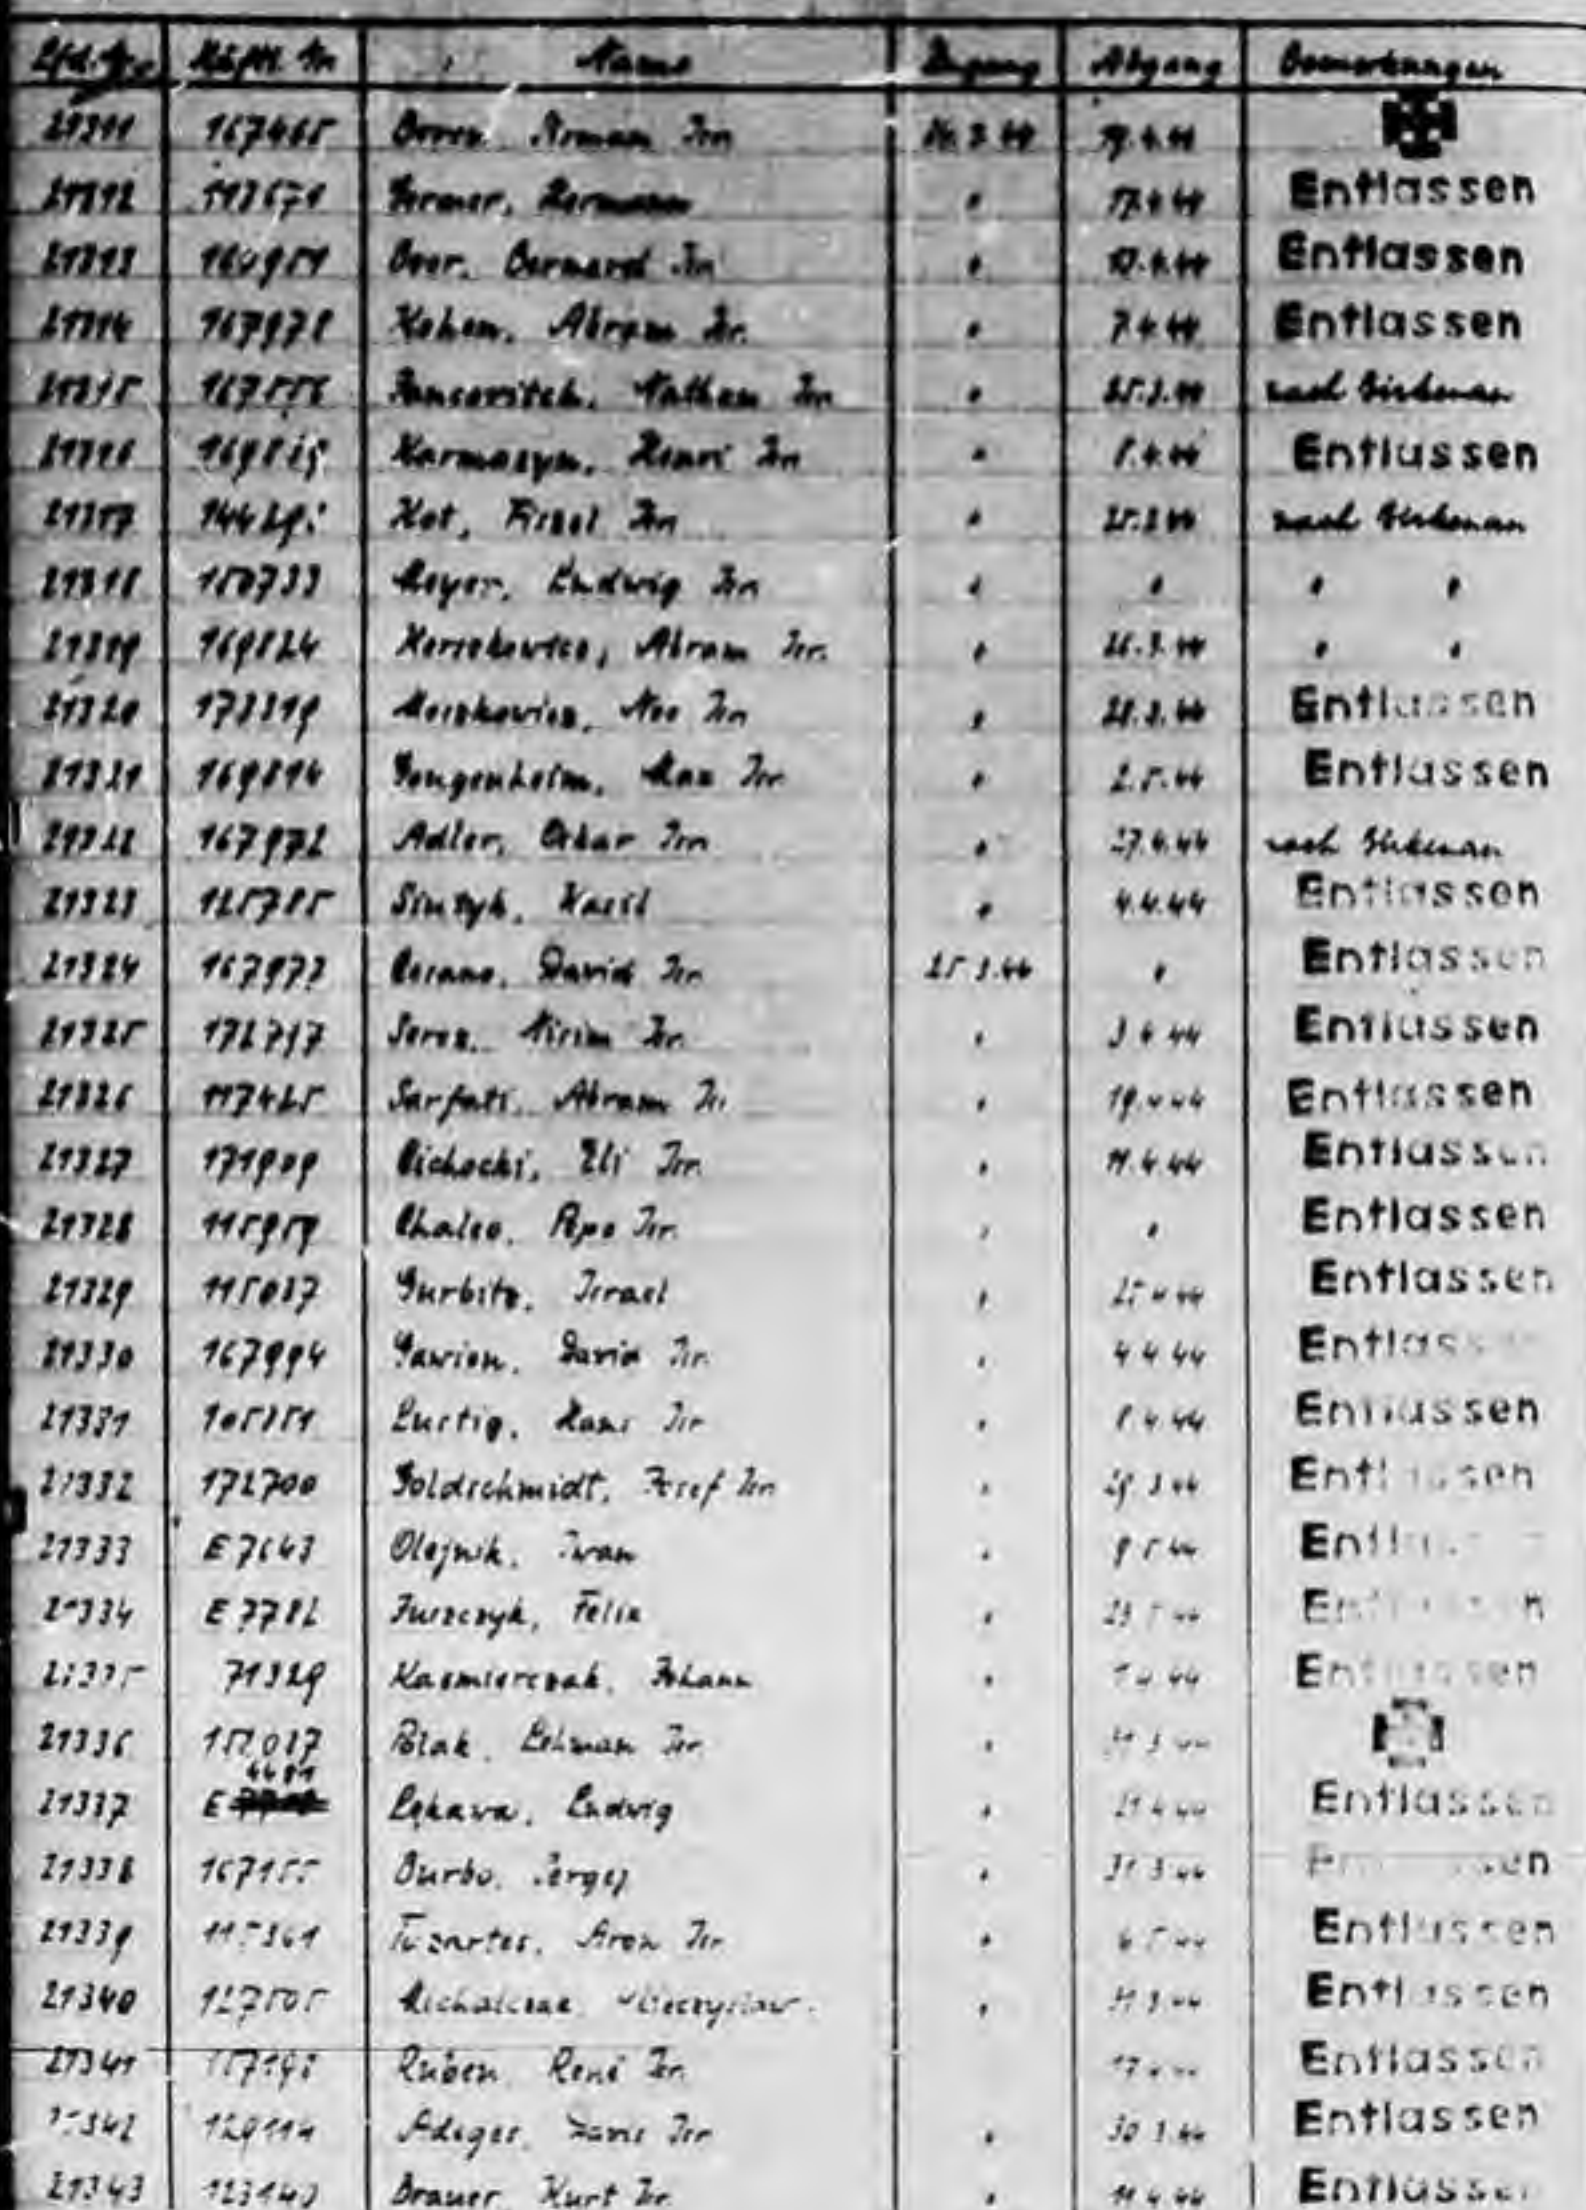 Lfd. Nr. Häftl. Nr. Name Zugang Abgang Bemerkungen
21311 167465 Isr. 19.4.44
21312 113671 Hermann " 17.4.44 Entlassen
21313 Bernard Isr. " 17.4.44 Entlassen
21314 167978 Kohen, Abram Isr. " 7.4.44 Entlassen
21315 167556 Nathan Isr. " 25.3.44 nach Birkenau
21316 Karmasyn, Henri Isr. " 8.4.44 Entlassen
21317 Kot, Isr. " 25.3.44 nach Birkenau
21318 150733 Meyer, Ludwig Isr. " " " "
21319 169824 Herschkowicz, Abram Isr. " 26.3.44 " "
21320 173319 Moszkowicz, Noe Isr. " 28.3.44 Entlassen
21321 169814 Gougenheim, Max Isr. " 2.5.44 Entlassen
21322 167972 Adler, Oskar Isr. " 27.4.44 nach Birkenau
21323 125785 Sintyk, Wasil " 4.4.44 Entlassen
21324 167973 David Isr. 25.3.44 " Entlassen
21325 172737 Isr. " 3.4.44 Entlassen
21326 117425 Sarfati, Abram Isr. " 19.4.44 Entlassen
21327 171909 Cichocki, Eli Isr. " 11.4.44 Entlassen
21328 115959 Chaleo, Pepo Isr. " " Entlassen
21329 115037 Gurbitz, Israel " 25.4.44 Entlassen
21330 167994 Gawion, David Isr. " 4.4.44 Entlassen
21331 105351 Lustig, Hans Isr. " 8.4.44 Entlassen
21332 172700 Goldschmidt, Josef Isr. " 29.3.44 Entlassen
21333 E 7643 Olejnik, Iwan " 9.5.44 Entlassen
21334 E 7782 Juszczyk, Felix " 23.5.44 Entlassen
21335 71329 Kasmierczak, Johann " 1.4.44 Entlassen
21336 Polak, Lehman Isr. " 31.3.44
4481
21337 E Lękawa, Ludwig " 21.4.44 Entlassen
21338 167155 Burbo, Sergej " 31.3.44 Entlassen
21339 115361 Aron Isr. " 6.5.44 Entlassen
21340 127505 Michalczak, Mieczyslaw " 31.3.44 Entlassen
21341 Ruben, René Isr. Entlassen
21342 129114 Adeges, Isr. " 30.3.44 Entlassen
21343 123143 Brauer, Kurt Isr. " 11.4.44 Entlassen